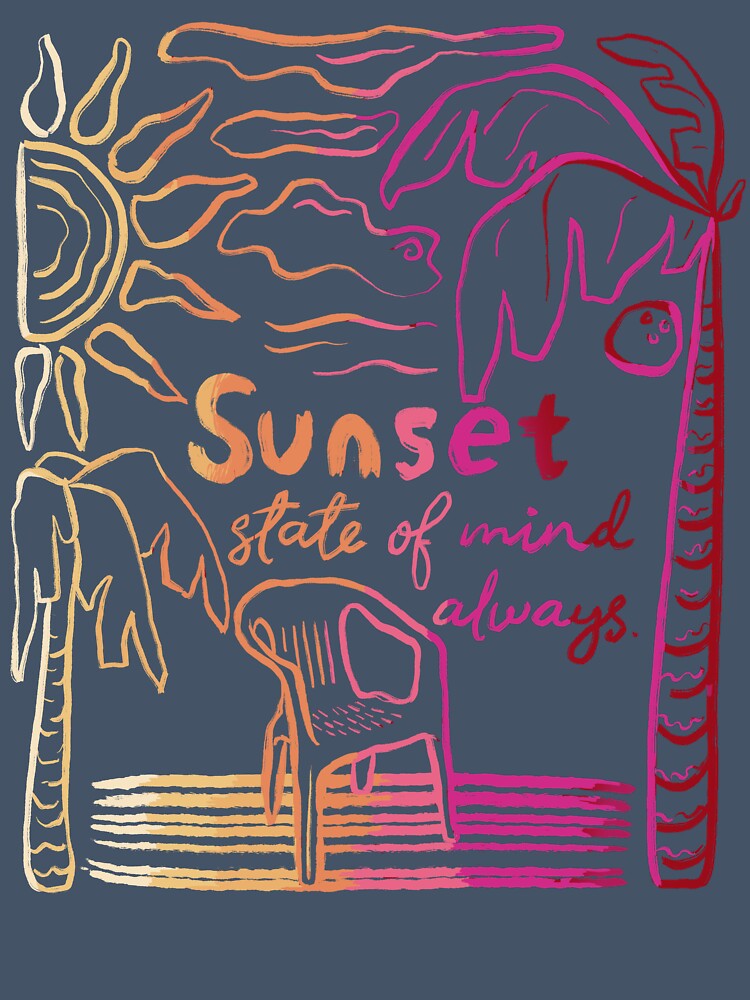 Sunset
state of mind
always.